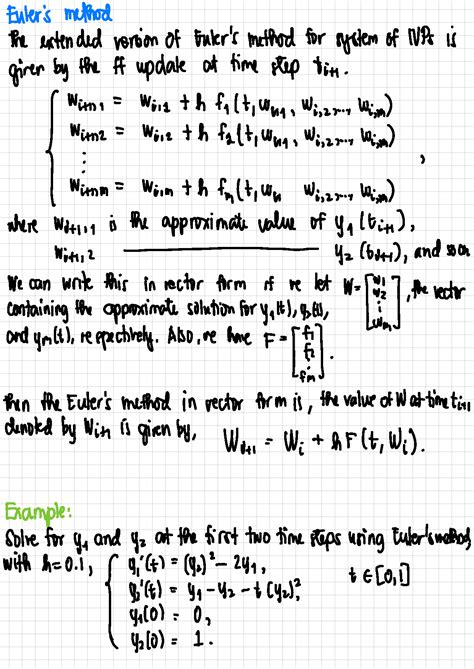 Euler's method
The extended version of Euler's method for system of IVPs is
given by the ff update at time step t_{i+1}.
w_{i+1,1} = w_{i,1} + h f_1(t, w_{i,1}, w_{i,2}, ..., w_{i,m})
w_{i+1,2} = w_{i,2} + h f_2(t, w_{i,1}, w_{i,2}, ..., w_{i,m})
⋮
w_{i+1,m} = w_{i,m} + h f_m(t, w_{i,1} w_{i,2}, ..., w_{i,m}) ,
where w_{i+1,1} is the approximate value of y_1(t_{i+1}),
w_{i+1,2} ——— y_2(t_{i+1}), and so on
We can write this in vector form if we let W = [w_1 w_2 ⋮ w_m], the vector
containing the approximate solution for y_1(t), y_2(t),
and y_m(t), respectively. Also, we have F = [f_1 f_2 ⋮ f_m].
Then the Euler's method in vector form is, the value of W at time t_{i+1}
denoted by W_{i+1} is given by, W_{i+1} = W_i + h F(t, W_i).
Example:
Solve for y_1 and y_2 at the first two time steps using Euler's method
with h=0.1, y_1'(t) = (y_2)^2 - 2y_1,
y_2'(t) = y_1 - y_2 - t(y_2)^2, t ∈ [0,1]
y_1(0) = 0,
y_2(0) = 1.